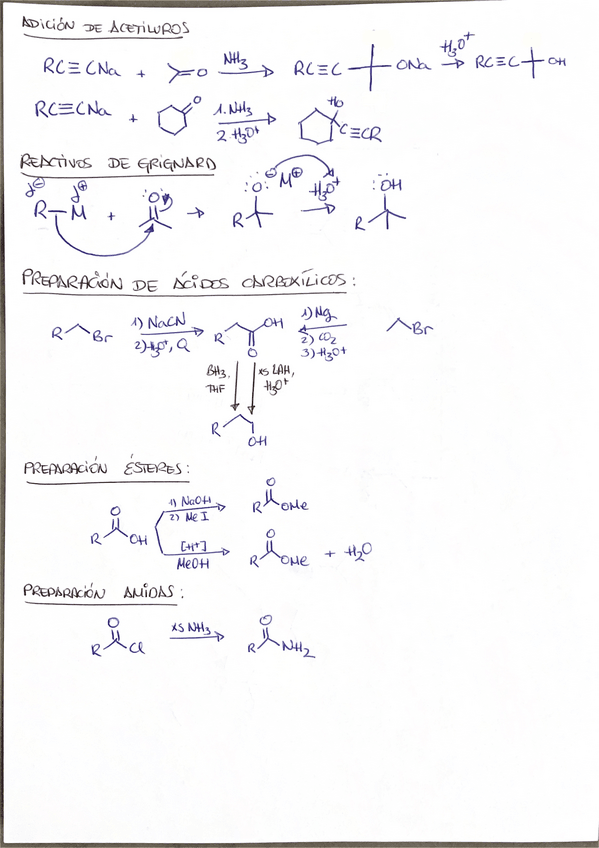 ADICIÓN DE ACETILUROS
RC≡CNa + =O NH3 RC≡C ONa H3O+ RC≡C OH
RC≡CNa + O 1. NH3 2 H3O+ HO C≡CR
REACTIVOS DE GRIGNARD
δ⊖ δ⊕
R-M + :O: R :O:⊖ M⊕ H3O+ R :OH
PREPARACIÓN DE ÁCIDOS CARBOXÍLICOS:
R Br 1) NaCN 2) H3O+, Q R OH O 1) Mg 2) CO2 3) H3O+ Br
BH3, THF xs LAH, H3O+
R OH
PREPARACIÓN ÉSTERES:
R O OH 1) NaOH 2) MeI R O OMe
[H+] MeOH R O OMe + H2O
PREPARACIÓN AMIDAS:
R O Cl xs NH3 R O NH2